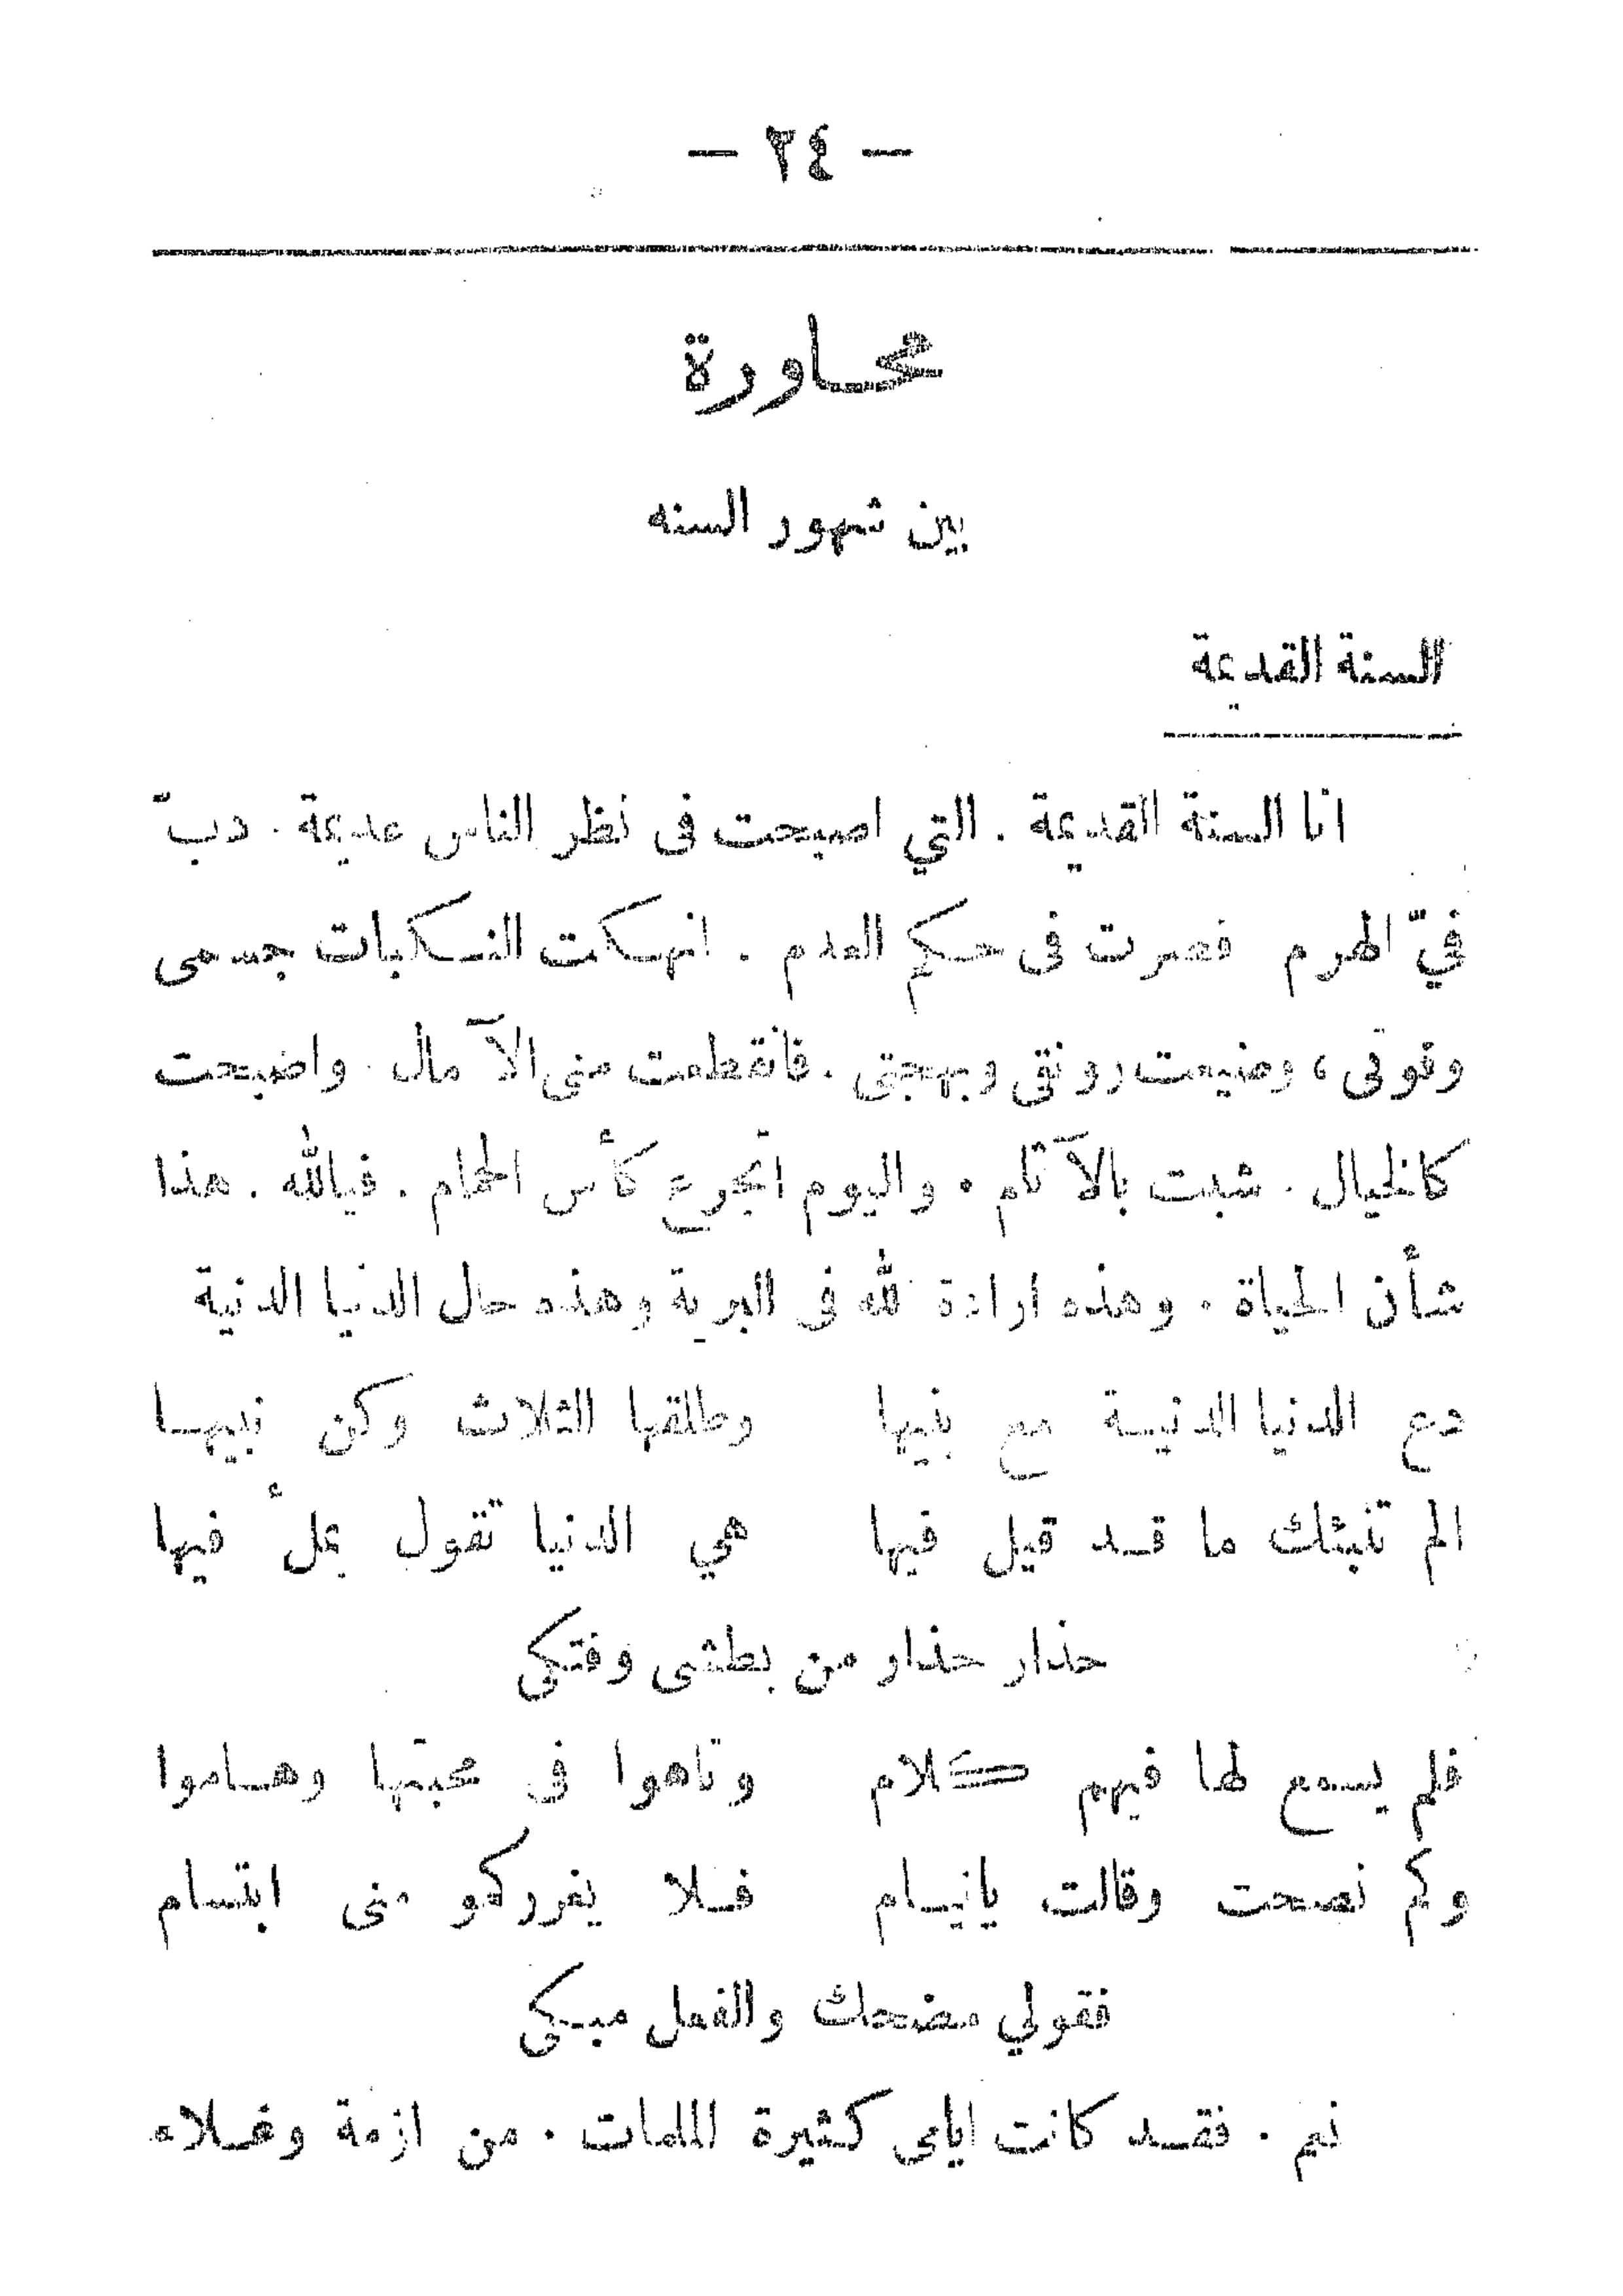 — ٢٤ —
محاورة
بين شهور السنه
السنة القديمة
انا السنة القديمة . التي اصبحت فى نظر الناس عديمة . دبّ
فيّ الهرم فصرت فى حكم العدم . انهكت النكبات جسمى
وقوتى ، وضيعت رونقى وبهجتى . فانقطعت منى الآ مال . واضبحت
كالخيال . شبت بالآ ثام . واليوم اتجرع كأس الحمام . فيالله . هذا
شأن الحياة . وهذه ارادة لله فى البرية وهذه حال الدنيا الدنية
دع الدنيا الدنيــة مع بنيها وطلقها الثلاث وكن نبيهــا
الم تنبئك ما قــد قيل فيها هي الدنيا تقول بملأ فيها
حذار حذار من بطشى وفتكى
فلم يسمع لها فيهم كلام وتاهوا فى محبتها وهــاموا
وكم نصحت وقالت يانيــام فــلا يغرركمو منى ابتسام
فقولي مضحك والفعل مبــكى
نعم . فقــد كانت ايامى كثيرة الملمات . من ازمة وغــلاء